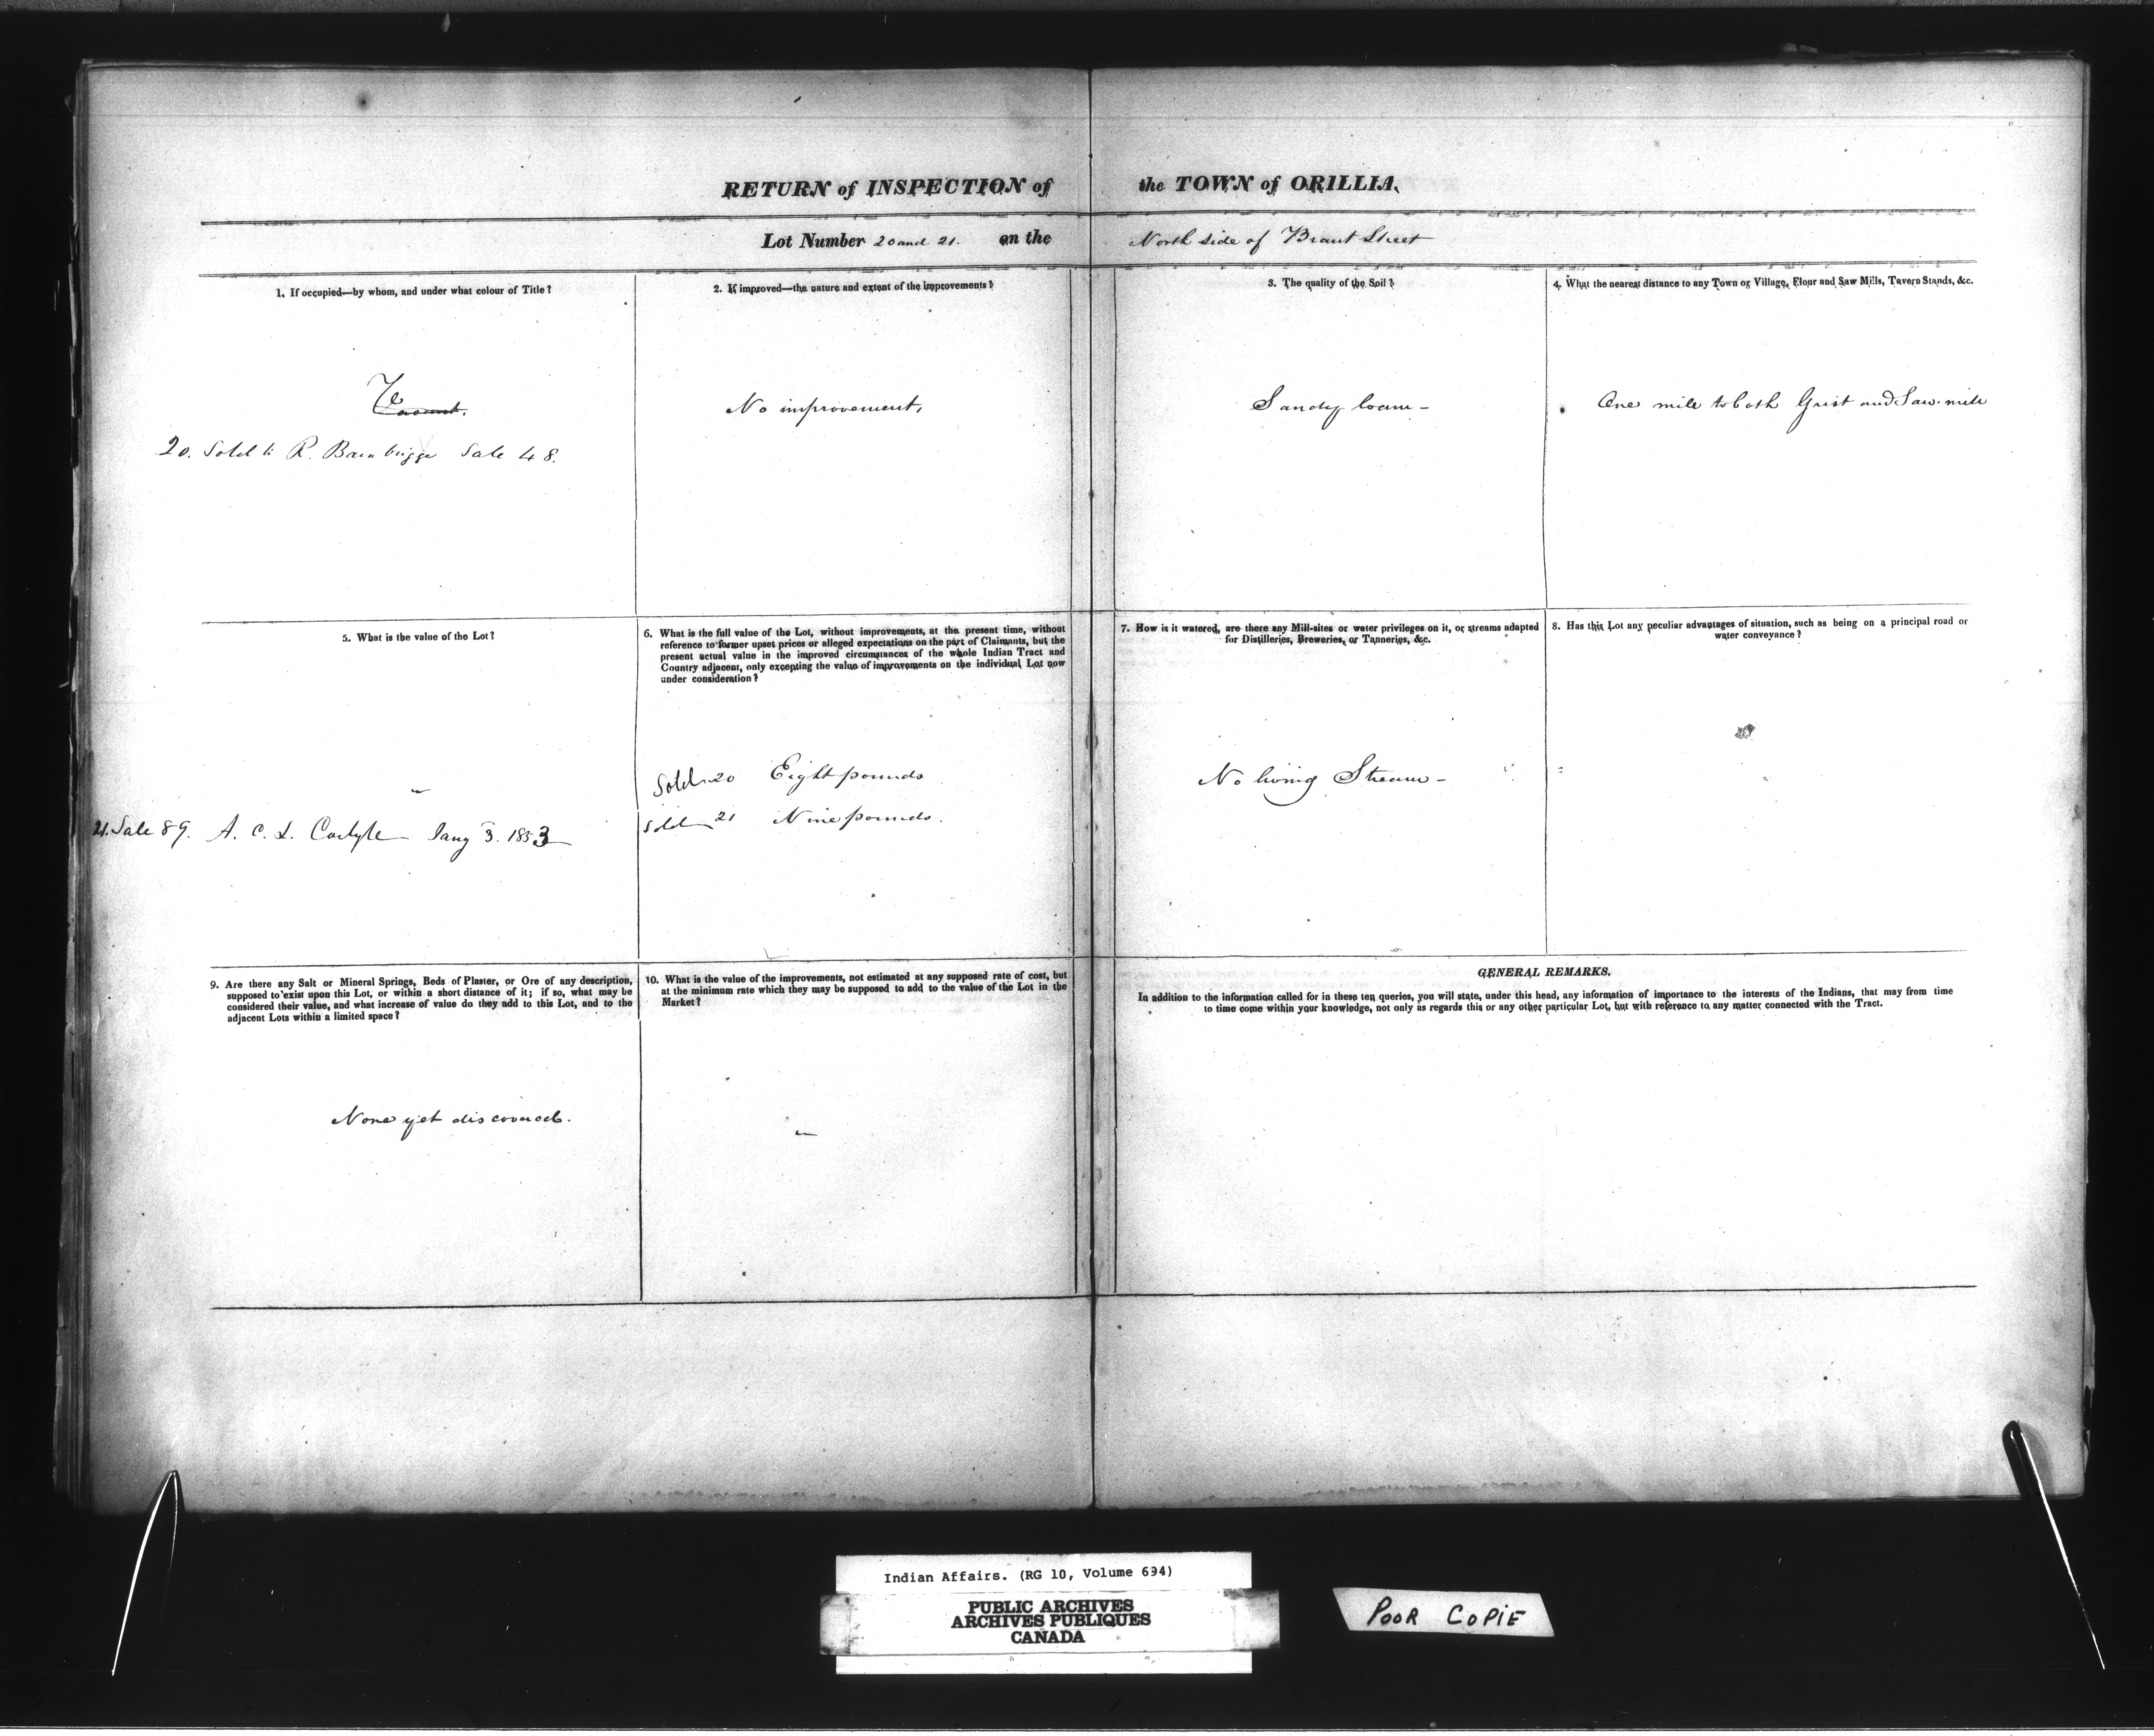 RETURN of INSPECTION of the TOWN of ORILLIA.
Lot Number 20 and 21. on the North side of Brant Street
1. If occupied—by whom, and under what colour of Title?
Vacant.
20. Sold to R. Bainbrigge Sale 48.
2. If improved—the nature and extent of the improvements?
No improvement,
3. The quality of the Soil?
Sandy loam –
4. What the nearest distance to any Town or Village, Flour and Saw Mills, Tavern Stands, &c.
One mile to both Grist and Saw mill
5. What is the value of the Lot?
"
21. Sale 89. A. C. L. Carlyle Jany 3. 1853
6. What is the full value of the Lot, without improvements, at the present time, without
reference to former upset prices or alleged expectations on the part of Claimants, but the
present actual value in the improved circumstances of the whole Indian Tract and
Country adjacent, only excepting the value of improvements on the individual Lot now
under consideration?
Sold 20 Eight pounds
Sold 21 Nine pounds.
7. How is it watered, are there any Mill-sites or water privileges on it, or streams adapted
for Distilleries, Breweries, or Tanneries, &c.
No living Stream –
8. Has this Lot any peculiar advantages of situation, such as being on a principal road or
water conveyance?
9. Are there any Salt or Mineral Springs, Beds of Plaster, or Ore of any description,
supposed to exist upon this Lot, or within a short distance of it; if so, what may be
considered their value, and what increase of value do they add to this Lot, and to the
adjacent Lots within a limited space?
None yet discovered.
10. What is the value of the improvements, not estimated at any supposed rate of cost, but
at the minimum rate which they may be supposed to add to the value of the Lot in the
Market?
"
GENERAL REMARKS.
In addition to the information called for in these ten queries, you will state, under this head, any information of importance to the interests of the Indians, that may from time
to time come within your knowledge, not only as regards this or any other particular Lot, but with reference to any matter connected with the Tract.
Indian Affairs. (RG 10, Volume 694)
PUBLIC ARCHIVES
ARCHIVES PUBLIQUES
CANADA
POOR COPIE